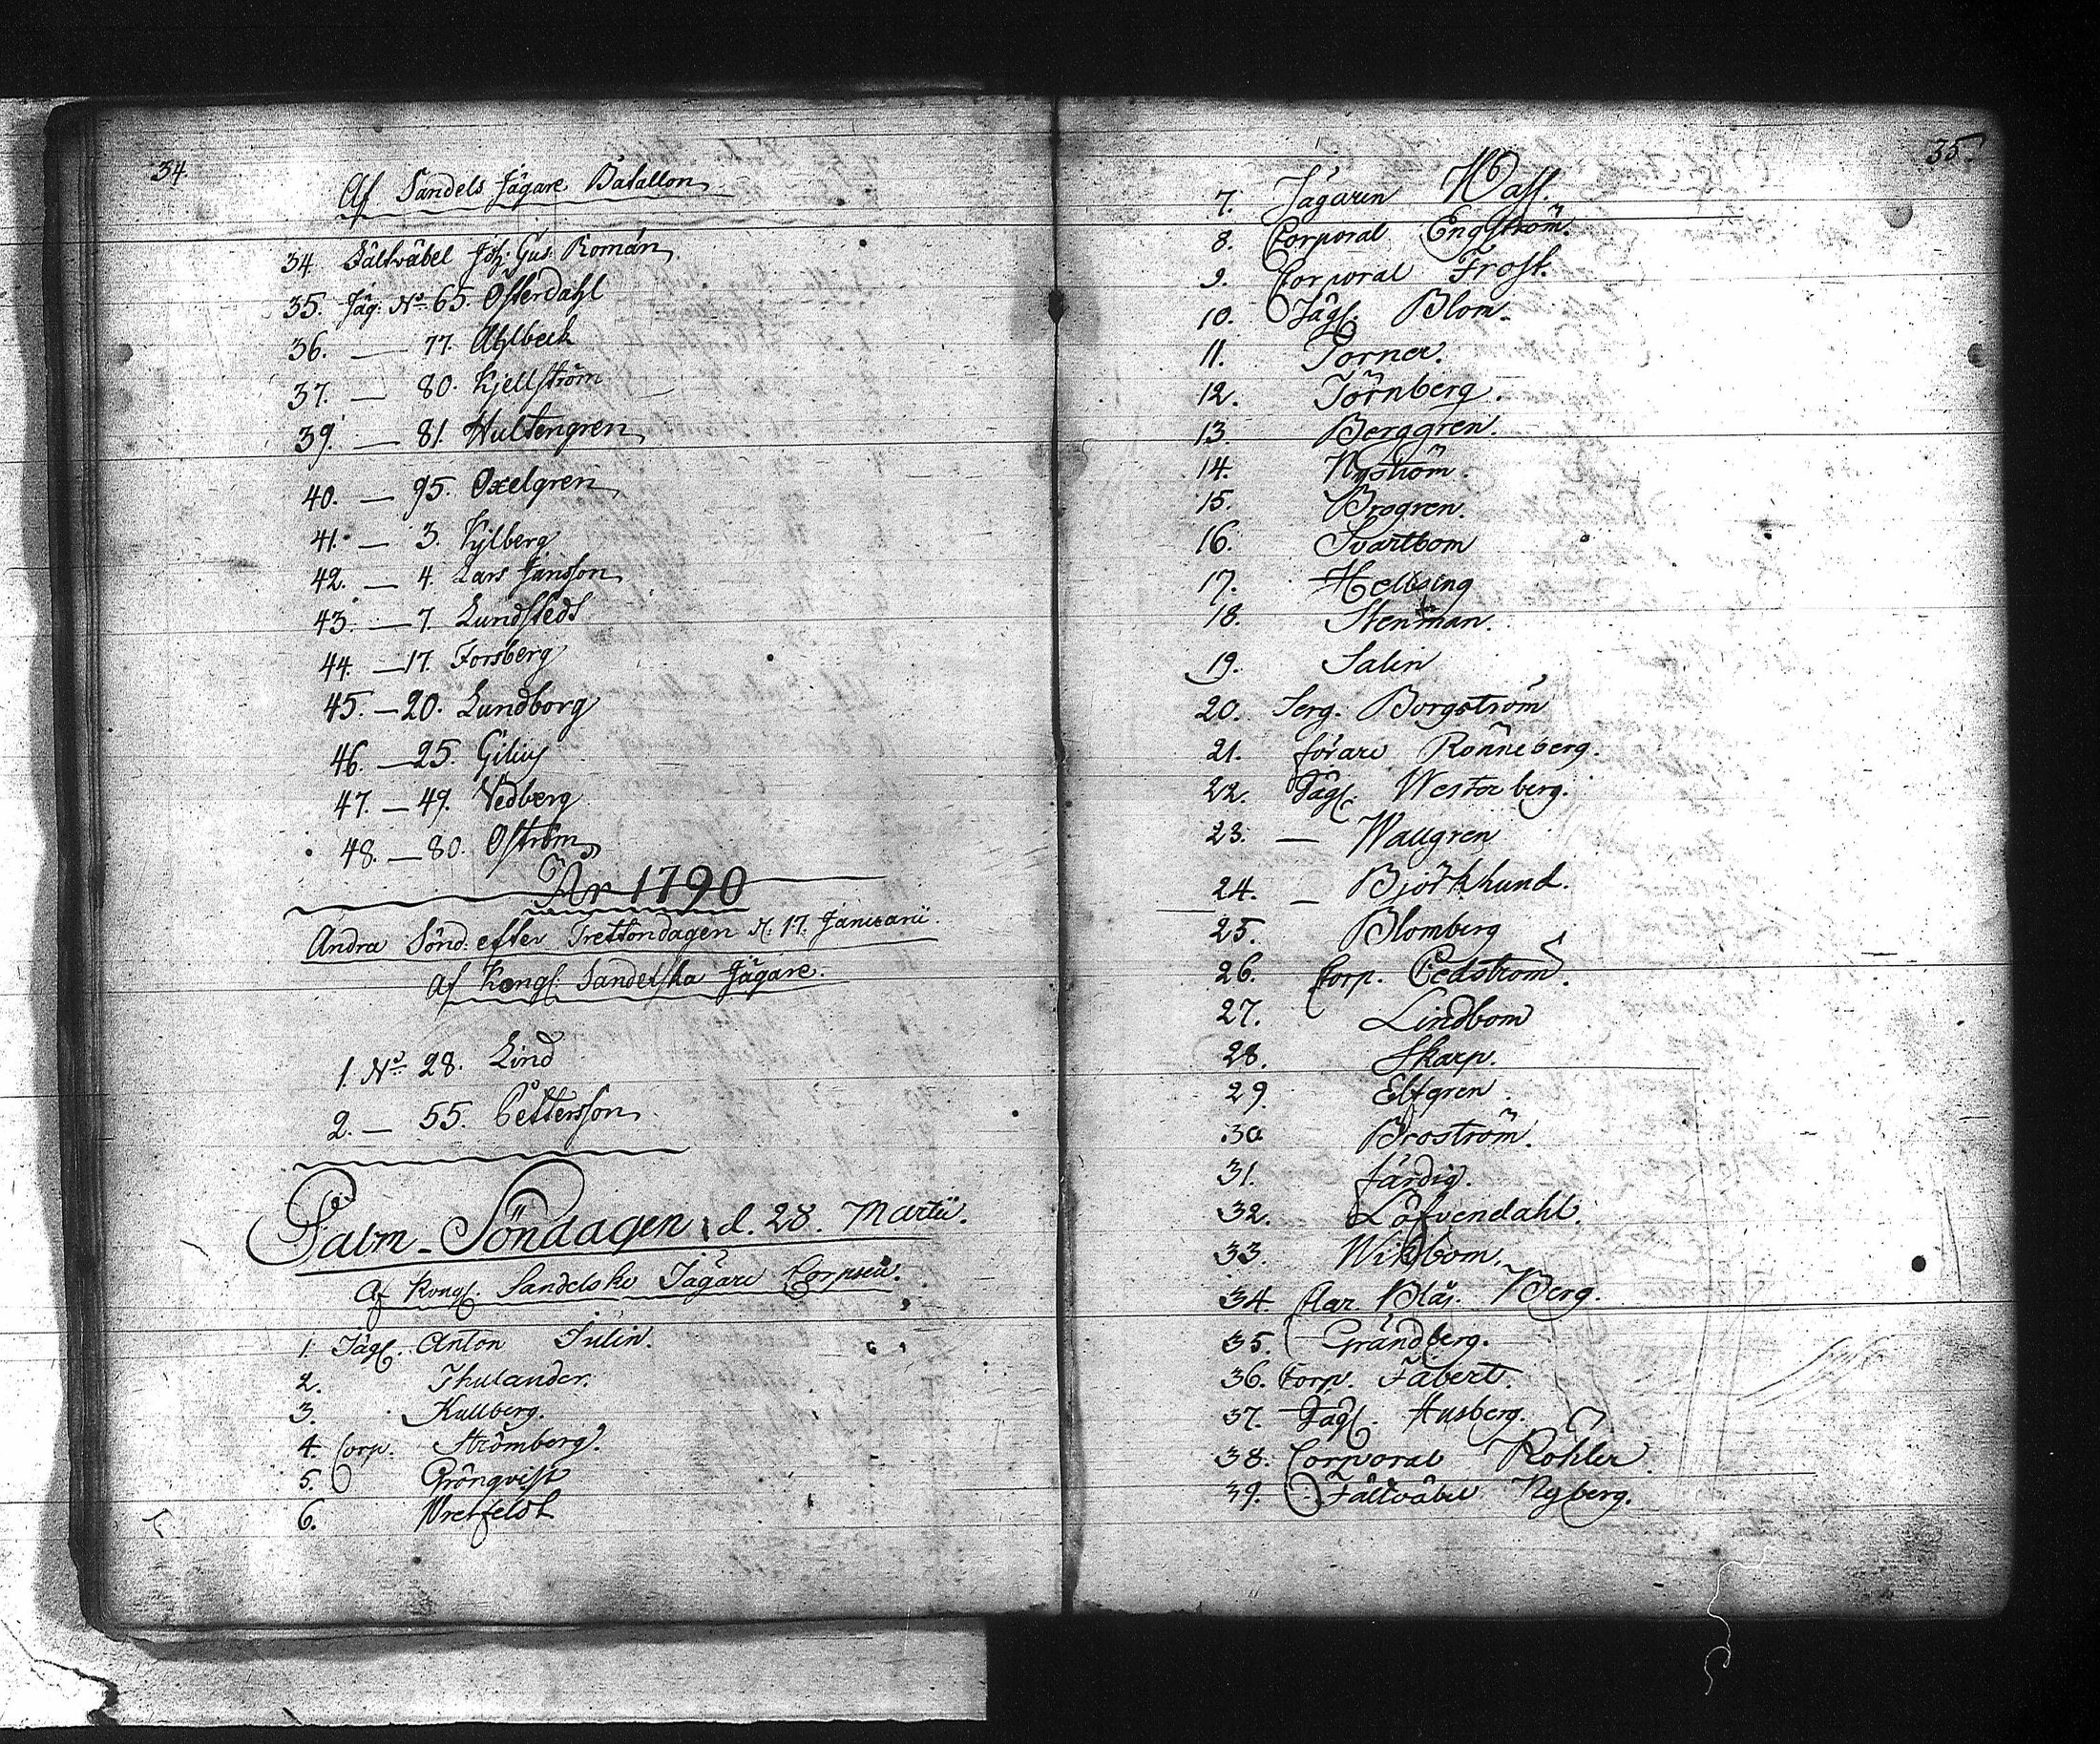 34.
Af Sandels Jägare Batallon
34 Fältväbel Joh: Gus: Román
35. Jäg: No 65. Österdahl
36. — 77. Ahlbeck
37. — 80. Kjellström
39. — 81. Hultengren
40. — 95. Oxelgren
41. — 3. Kylberg
42. — 4. Lars Jansson
43. — 7. Lundstedt
44. — 17. Forsberg
45. — 20. Lundborg
46. — 25. Gilius
47. — 49. Vedberg
48. — 80. Öström
År 1790
Andra Sönd: efter Trettondagen d. 17. Januarii.
af Kongl: Sandelska Jägare.
1. No 28. Lind
2. — 55. Pettersson
Palm-Söndagen d. 28. Martii.
Af Kongl. Sandelske Jägare Corpsen.
1. Jäg. Anton Julin.
2. Thulander.
3. Kullberg.
4. Corp. Strömberg.
5. Grönqvist
6. Wretfeldt
35.
7. Jägaren Wass.
8. Corporal Engström.
9. Corporal Frost.
10. Jäg. Blom.
11. Porner.
12. Törnberg.
13. Berggren.
14. Nyström.
15. Brogren.
16. Svartbom
17. Helsing
18. Stenman.
19. Salin
20. Serg. Borgström
21. förare Rönneberg.
22. Jäg. Westerberg.
23. — Wallgren
24. — Björklund.
25. Blomberg
26. Corp. Cedström.
27. Lindbom
28. Skarp.
29. Elfgren.
30 Broström.
31. färdig.
32. Löfvendahl.
33. Wikbom.
34 Blås. Berg.
35. Grändberg.
36. Corp. Fabert.
37. Jäg. Husberg.
38. Corporal Köhler.
39. Fältväbel Nyberg.